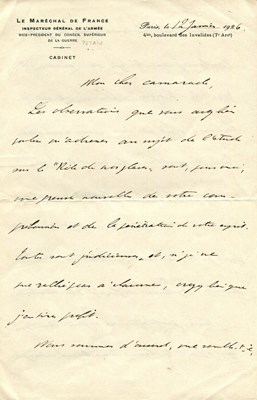 LE MARÉCHAL DE FRANCE
INSPECTEUR GÉNÉRAL DE L'ARMÉE
VICE-PRÉSIDENT DU CONSEIL SUPÉRIEUR
DE LA GUERRE
CABINET
Paris, le 12 Janvier 1926
4bis, boulevard des Invalides (7e Arrt)
Mon cher camarade,
Les observations que vous avez bien
voulu m'adresser au sujet de l'étude
sur le "Rôle de nos places", sont, pour moi,
une preuve nouvelle de votre com-
pétence et de la pénétration de votre esprit.
Toutes sont judicieuses, et, si je ne
me rallie pas à chacune, croyez bien que
j'en tire profit.
Nous sommes d'accord, me semble-t-il,